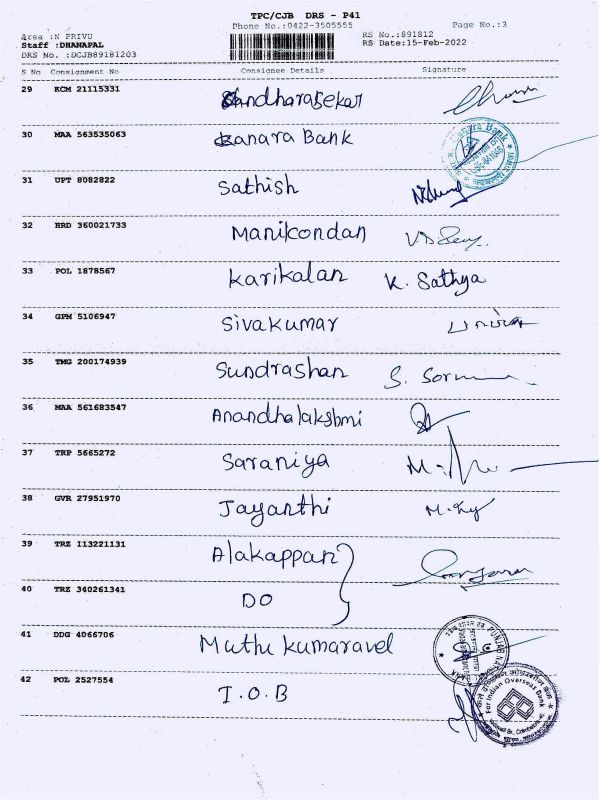 TPC/CJB DRS - P41
Phone No.:0422-3505555 Page No.:3
Area :N PRIVU RS No.:891812
Staff :DHANAPAL RS Date:15-Feb-2022
DRS No. :DCJB89181203
S No Consignment No Consignee Details Signature
29 KCM 21115331 Chandharasekar
30 MAA 563535063 Canara Bank
31 UPT 8082822 Sathish
32 HRD 360021733 Manikondan
33 POL 1878567 Karikalan K. Sathya
34 GPM 5106947 Sivakumar
35 TMG 200174939 Sundrashan
36 MAA 561683547 Anandhalakshmi
37 TRP 5665272 Saraniya
38 GVR 27951970 Jayanthi
39 TRZ 113221131 Alakappan
40 TRZ 340261341 DO
41 DDG 4066706 Muthu Kumaravel
42 POL 2527554 I.O.B
For Indian Overseas Bank